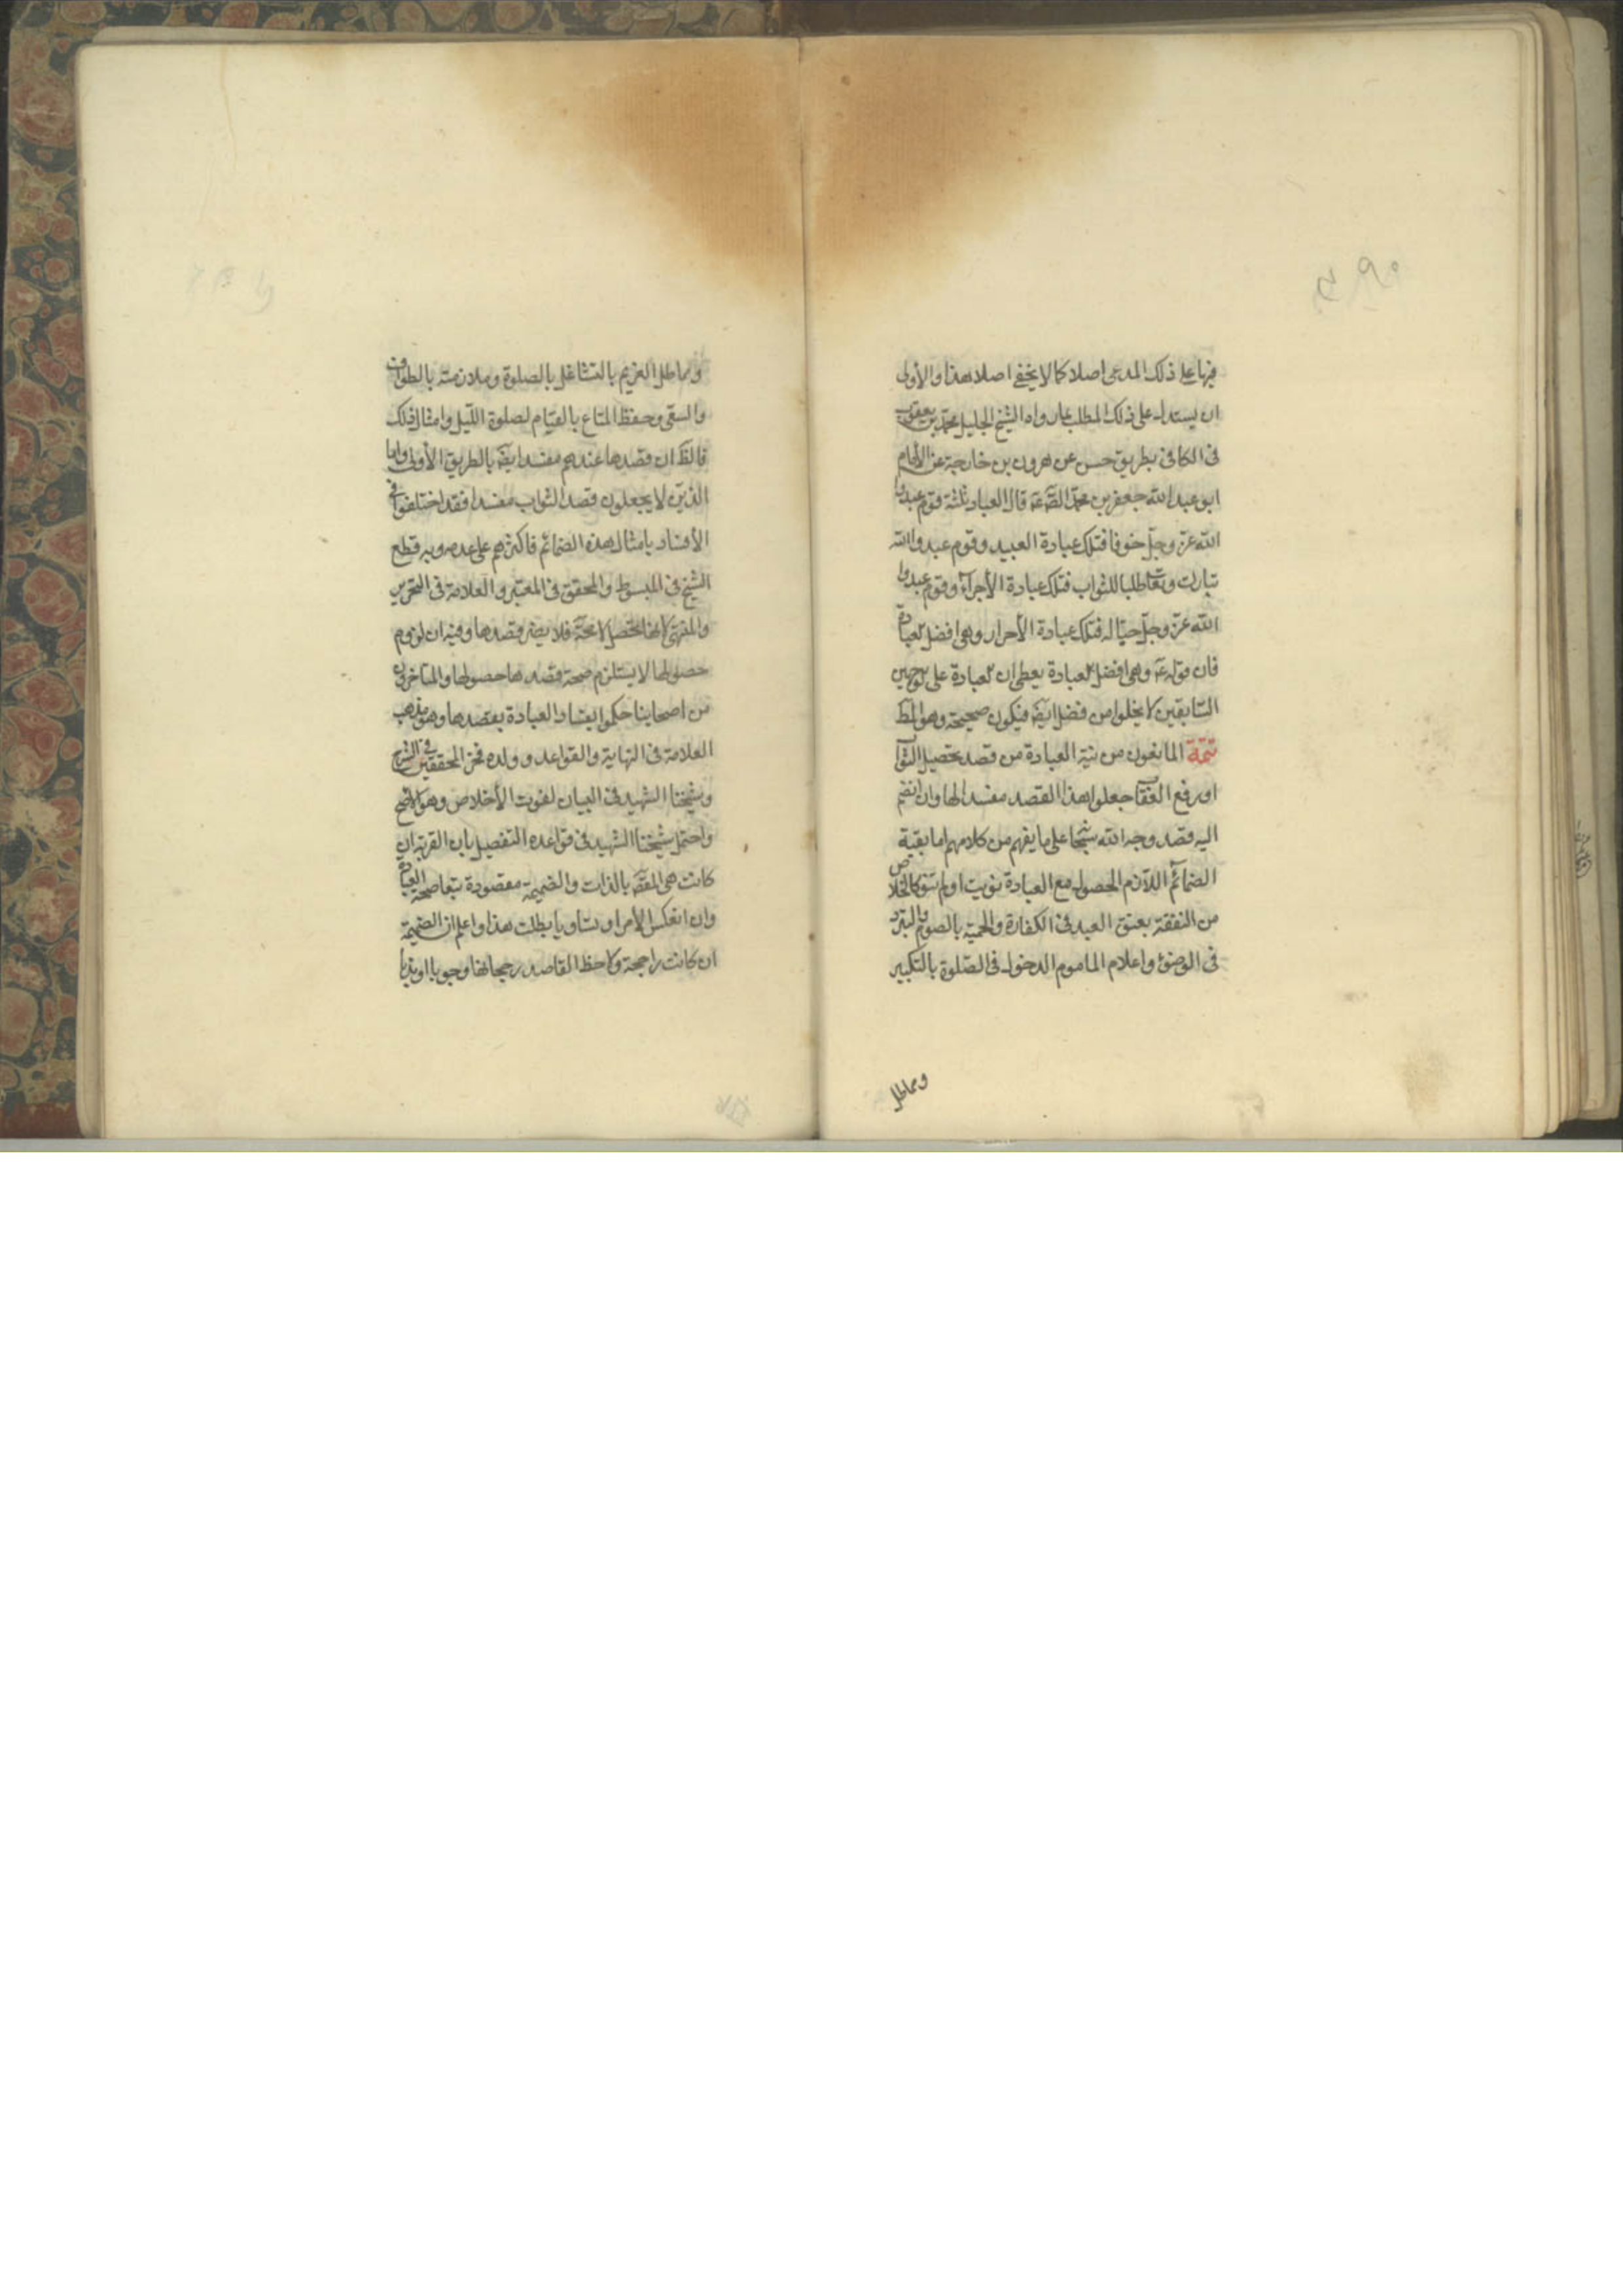 فيها على ذلك المدعى اصلا كما لا يخفى اصلا هذا والأولى
ان يستدل على ذلك المطلب بما رواه الشيخ الجليل محمد بن يعقوب
فى الكافى بطريق حسن عن هرون بن خارجة عن الأمام
ابو عبد الله جعفر بن محمد الصّ عَ قال العباد ثلثة قوم عبدوا
الله عزّ وجلّ خوفا فتلك عبادة العبيد وقوم عبدوا الله
تبارك وتعا طلبا للثواب فتلك عبادة الأجراء وقوم عبدوا
الله عزّ وجلّ حبّا له فتلك عبادة الأحرار وهى افضل العبادة
فان قوله عَ وهى افضل العبادة يعطى ان العبادة على الوجهين
السّابقين لا يخلوا من فضل ايضَ فيكون صحيحة وهو المط
تتمّة المانعون من نية العبادة من قصد تحصيل الثوا
او رفع العقا جعلوا هذا القصد مفسدا لها وان انضم
اليه قصد وجه الله سبحا على ما يفهم من كلامهم اما بقية
الضمائم اللازم الحصول مع العبادة نويت او لم تنو كالخلاص
من النفقة بعتق العبد فى الكفارة والحمية بالصوم والتبرد
فى الوضوء واعلام الماموم الدخول فى الصّلوة بالتكبير
ومماطل
ومماطل الغريم بالتشاغل بالصلوة وملازمته بالطواف
والسعى وحفظ المتاع بالقيام لصلوة الليل وامثال ذلك
فالظَ ان قصدها عندهم مفسد ايضَ بالطريق الأولى واما
الذين لا يجعلون قصد الثواب مفسدا فقد اختلفوا فى
الأفساد بامثال هذه الضمائم فاكثرهم على عدمه وبه قطع
الشيخ فى المبسوط والمحقق فى المعتبر والعلامة فى التحرير
والمنتهى لانها تحصل لا محة فلا يضر قصدها وفيه ان لزوم
حصولها لا يستلزم صحة قصد ها حصولها والمتاخرون
من اصحابنا حكموا بفساد العبادة بقصدها وهو مذهب
العلامة فى النهاية والقواعد وولده فخر المحققين فى الشرح
وشيخنا الشهيد فى البيان لفوت الأخلاص وهو الاصح
واحتمل شيخنا الشهيد فى قواعده التفصيل بان القربة ان
كانت هى المقصَ بالذات والضميمة مقصودة تبعا صحت العبادة
وان انعكس الامر او تساويا بطلت هذا واعلم ان الضميمة
ان كانت راجحة ولاحظ القاصد رجحانها وجوبا او ندبا